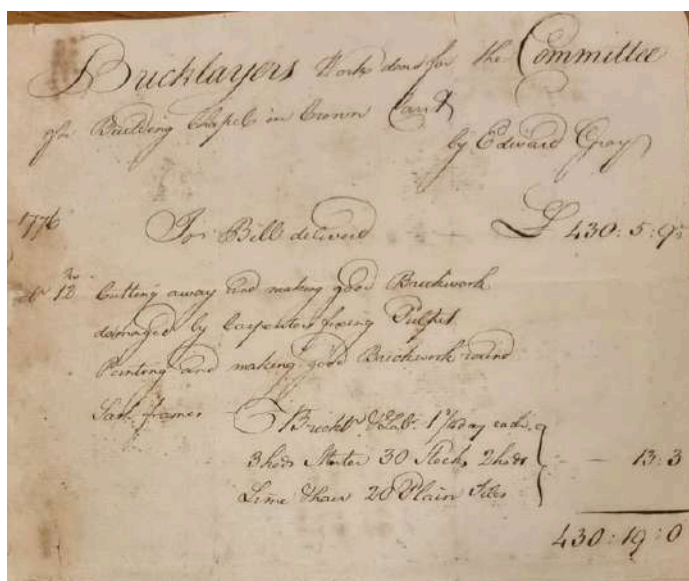 Bricklayers Work done for the Committee
for Building Chapel in Crown Court
by Edward Gray
1776 To Bill delivered £ 430 : 5 : 9
12 Cutting away and making good Brickwork
damaged by Carpenters fixing Pulpit
Pointing and making good Brickwork round
Sash frames Brickr & Labr 1 1/4 day each
3 hods Morter 30 Stocks 2 hods 13 : 3
Lime & hair 20 Plain Tiles
430 : 19 : 0